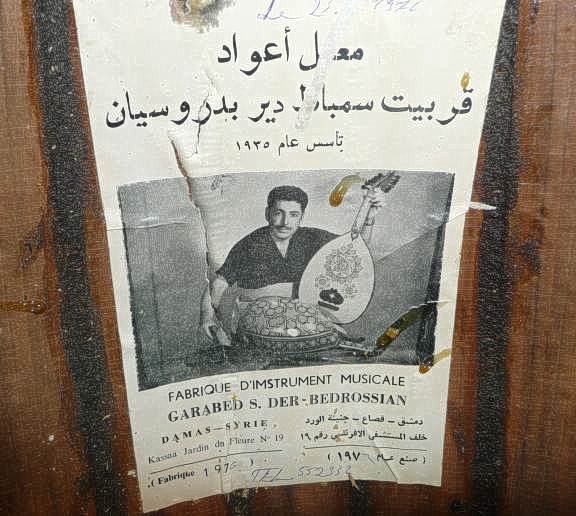 معمل أعواد
قربيت سمباط دير بدروسيان
تأسس عام ١٩٣٥
FABRIQUE D'IMSTRUMENT MUSICALE
GARABED S. DER-BEDROSSIAN
DAMAS-SYRIE
Kassaa Jardin du Fleure N° 19
(Fabrique 197 )
دمشق - قصاع - جنينة الورد
خلف المستشفى الافرنسي رقم ١٩
( صنع عام ١٩٧ )
TEL 552332